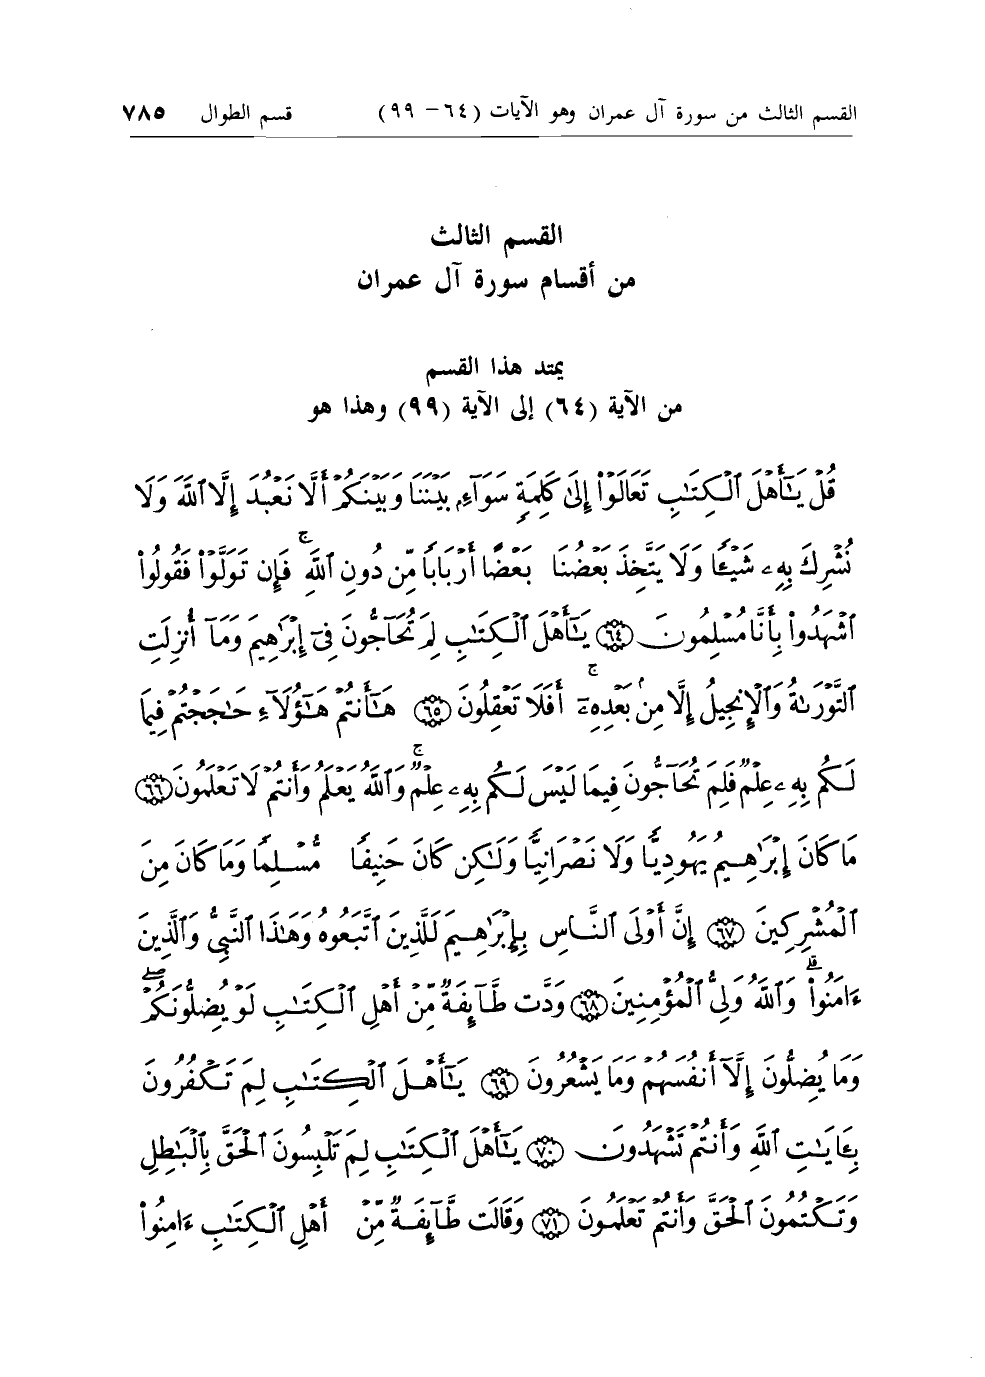 القسم الثالث من سورة آل عمران وهو الآيات (٦٤ - ٩٩) قسم الطوال ٧٨٥
القسم الثالث
من أقسام سورة آل عمران
يمتد هذا القسم
من الآية (٦٤) إلى الآية (٩٩) وهذا هو
قُلْ يَٰٓأَهْلَ ٱلْكِتَٰبِ تَعَالَوْا۟ إِلَىٰ كَلِمَةٍ سَوَآءٍۭ بَيْنَنَا وَبَيْنَكُمْ أَلَّا نَعْبُدَ إِلَّا ٱللَّهَ وَلَا
نُشْرِكَ بِهِۦ شَيْـًٔا وَلَا يَتَّخِذَ بَعْضُنَا بَعْضًا أَرْبَابًا مِّن دُونِ ٱللَّهِ ۚ فَإِن تَوَلَّوْا۟ فَقُولُوا۟
ٱشْهَدُوا۟ بِأَنَّا مُسْلِمُونَ ﴿٦٤﴾ يَٰٓأَهْلَ ٱلْكِتَٰبِ لِمَ تُحَآجُّونَ فِىٓ إِبْرَٰهِيمَ وَمَآ أُنزِلَتِ
ٱلتَّوْرَىٰةُ وَٱلْإِنجِيلُ إِلَّا مِنۢ بَعْدِهِۦٓ ۚ أَفَلَا تَعْقِلُونَ ﴿٦٥﴾ هَٰٓأَنتُمْ هَٰٓؤُلَآءِ حَٰجَجْتُمْ فِيمَا
لَكُم بِهِۦ عِلْمٌ فَلِمَ تُحَآجُّونَ فِيمَا لَيْسَ لَكُم بِهِۦ عِلْمٌ ۚ وَٱللَّهُ يَعْلَمُ وَأَنتُمْ لَا تَعْلَمُونَ ﴿٦٦﴾
مَا كَانَ إِبْرَٰهِيمُ يَهُودِيًّا وَلَا نَصْرَانِيًّا وَلَٰكِن كَانَ حَنِيفًا مُّسْلِمًا وَمَا كَانَ مِنَ
ٱلْمُشْرِكِينَ ﴿٦٧﴾ إِنَّ أَوْلَى ٱلنَّاسِ بِإِبْرَٰهِيمَ لَلَّذِينَ ٱتَّبَعُوهُ وَهَٰذَا ٱلنَّبِىُّ وَٱلَّذِينَ
ءَامَنُوا۟ ۗ وَٱللَّهُ وَلِىُّ ٱلْمُؤْمِنِينَ ﴿٦٨﴾ وَدَّت طَّآئِفَةٌ مِّنْ أَهْلِ ٱلْكِتَٰبِ لَوْ يُضِلُّونَكُمْ ۖ
وَمَا يُضِلُّونَ إِلَّآ أَنفُسَهُمْ وَمَا يَشْعُرُونَ ﴿٦٩﴾ يَٰٓأَهْلَ ٱلْكِتَٰبِ لِمَ تَكْفُرُونَ
بِـَٔايَٰتِ ٱللَّهِ وَأَنتُمْ تَشْهَدُونَ ﴿٧٠﴾ يَٰٓأَهْلَ ٱلْكِتَٰبِ لِمَ تَلْبِسُونَ ٱلْحَقَّ بِٱلْبَٰطِلِ
وَتَكْتُمُونَ ٱلْحَقَّ وَأَنتُمْ تَعْلَمُونَ ﴿٧١﴾ وَقَالَت طَّآئِفَةٌ مِّنْ أَهْلِ ٱلْكِتَٰبِ ءَامِنُوا۟